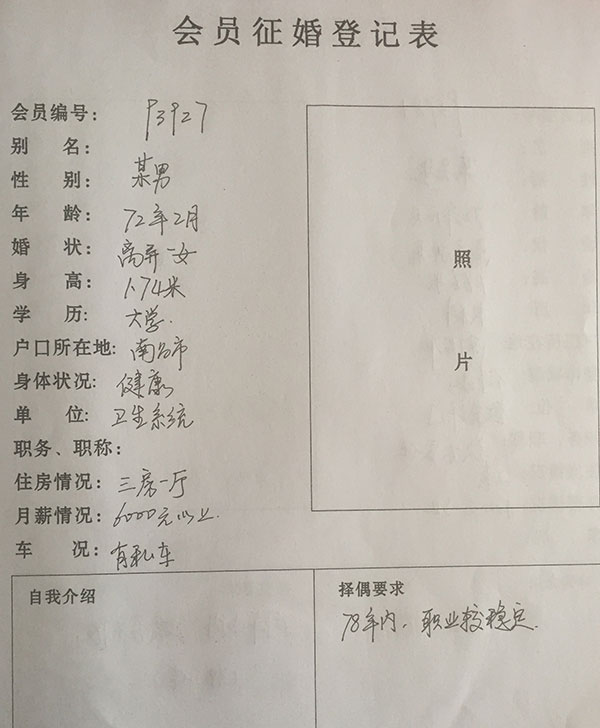 会员征婚登记表
会员编号: 93927
别 名:
性 别: 某男
年 龄: 72年2月
婚 状: 离异一女
身 高: 1.74米
学 历: 大学.
户口所在地: 南台市
身体状况: 健康
单 位: 卫生系统
职务、职称:
住房情况: 三房一厅
月薪情况: 6000元以上.
车 况: 有私车
照
片
自我介绍
择偶要求
78年内. 职业较稳定.